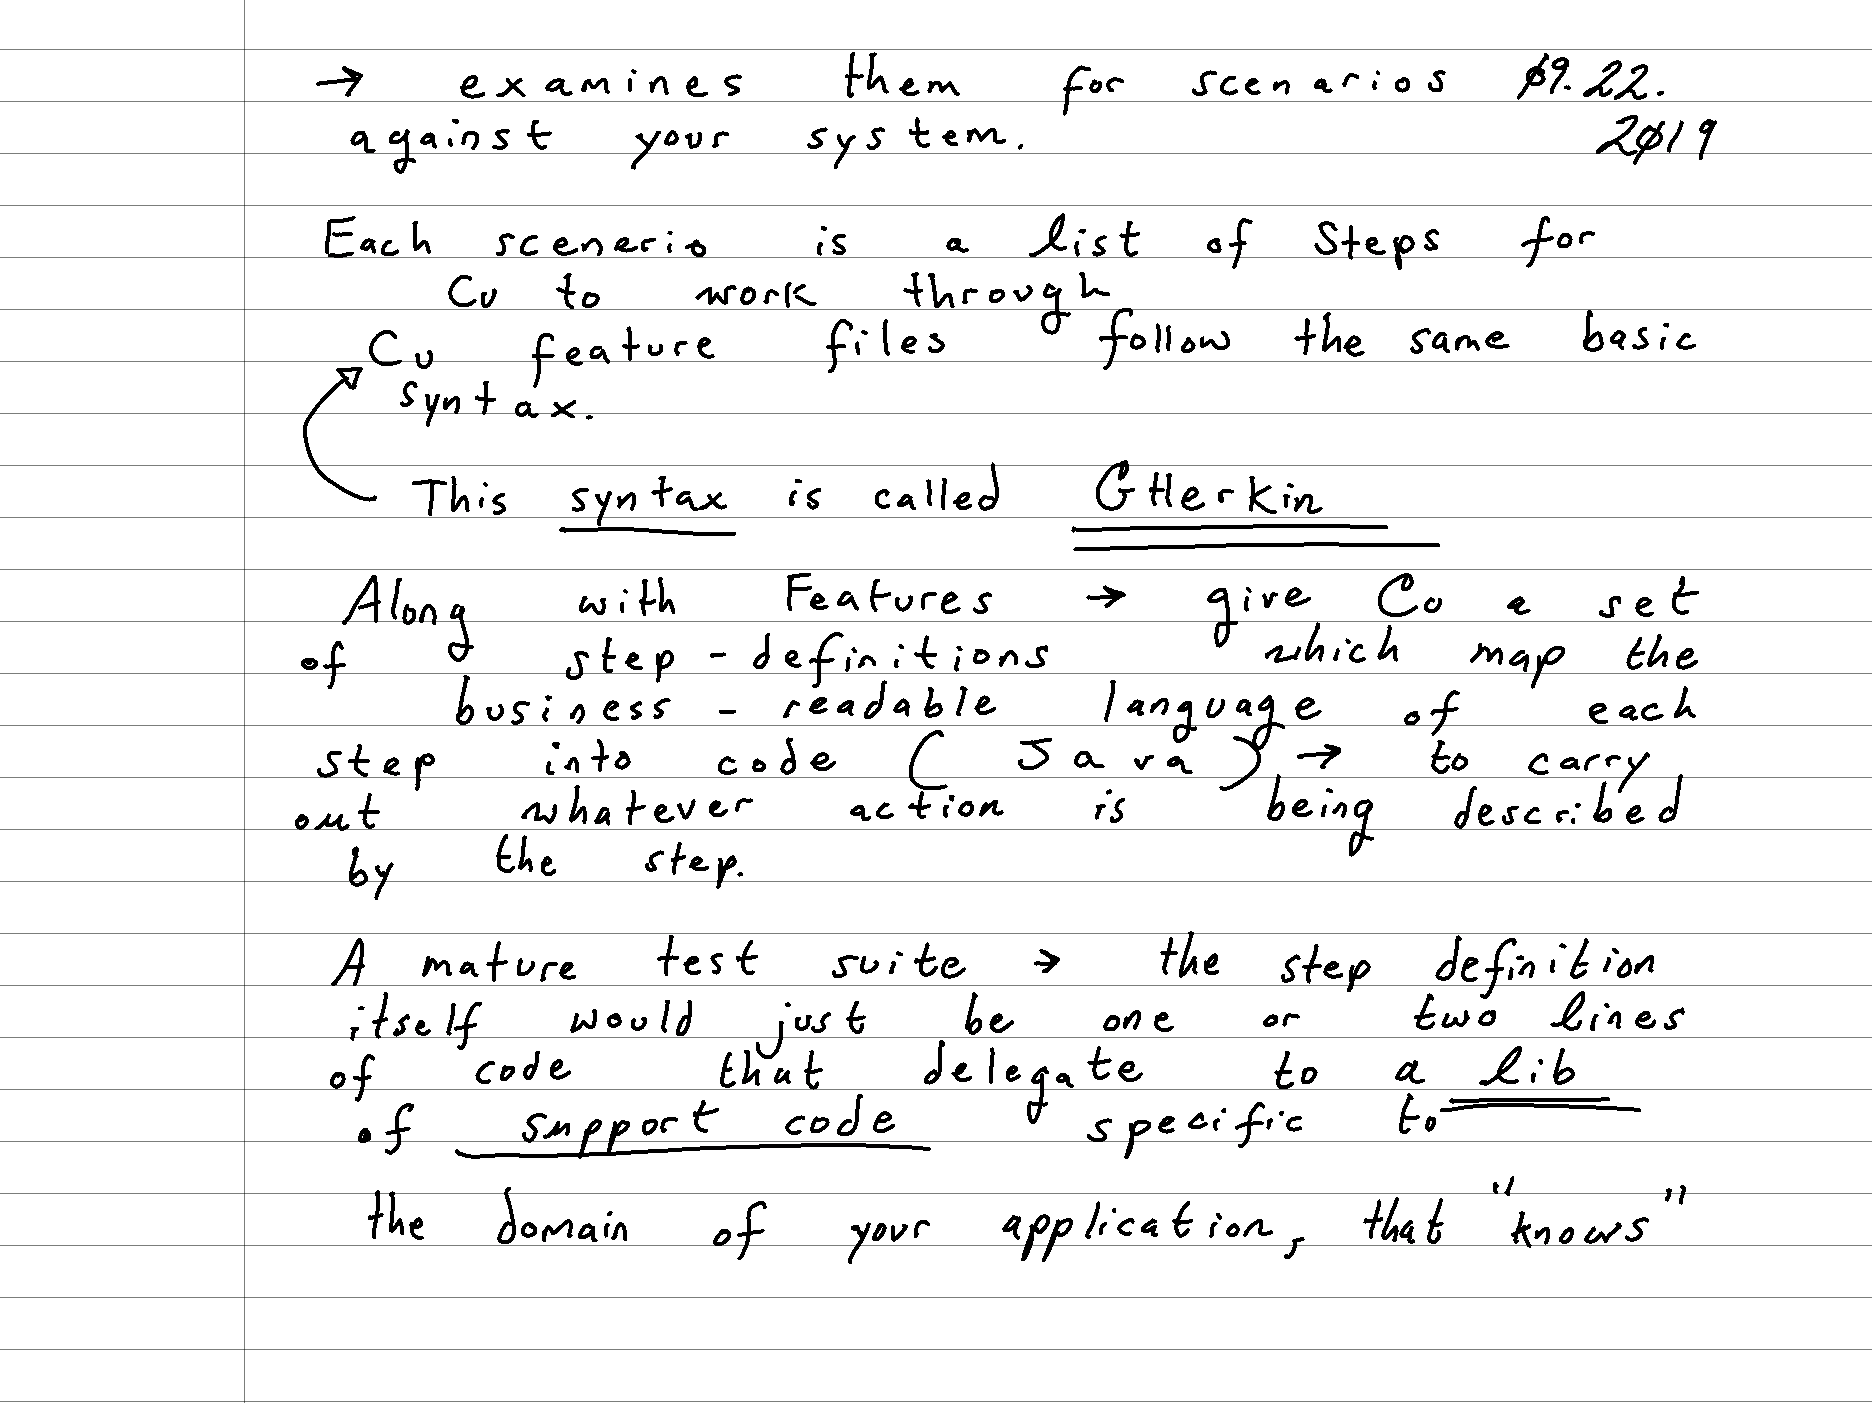 → examines them for scenarios 09.22.
against your system. 2019
Each scenerio is a list of Steps for
Cu to work through
Cu feature files follow the same basic
syntax.
This syntax is called GHerkin
Along with Features → give Cu a set
of step-definitions which map the
business-readable language of each
step into code (Java) → to carry
out whatever action is being described
by the step.
A mature test suite → the step definition
itself would just be one or two lines
of code that delegate to a lib
of support code specific to
the domain of your application, that "knows"